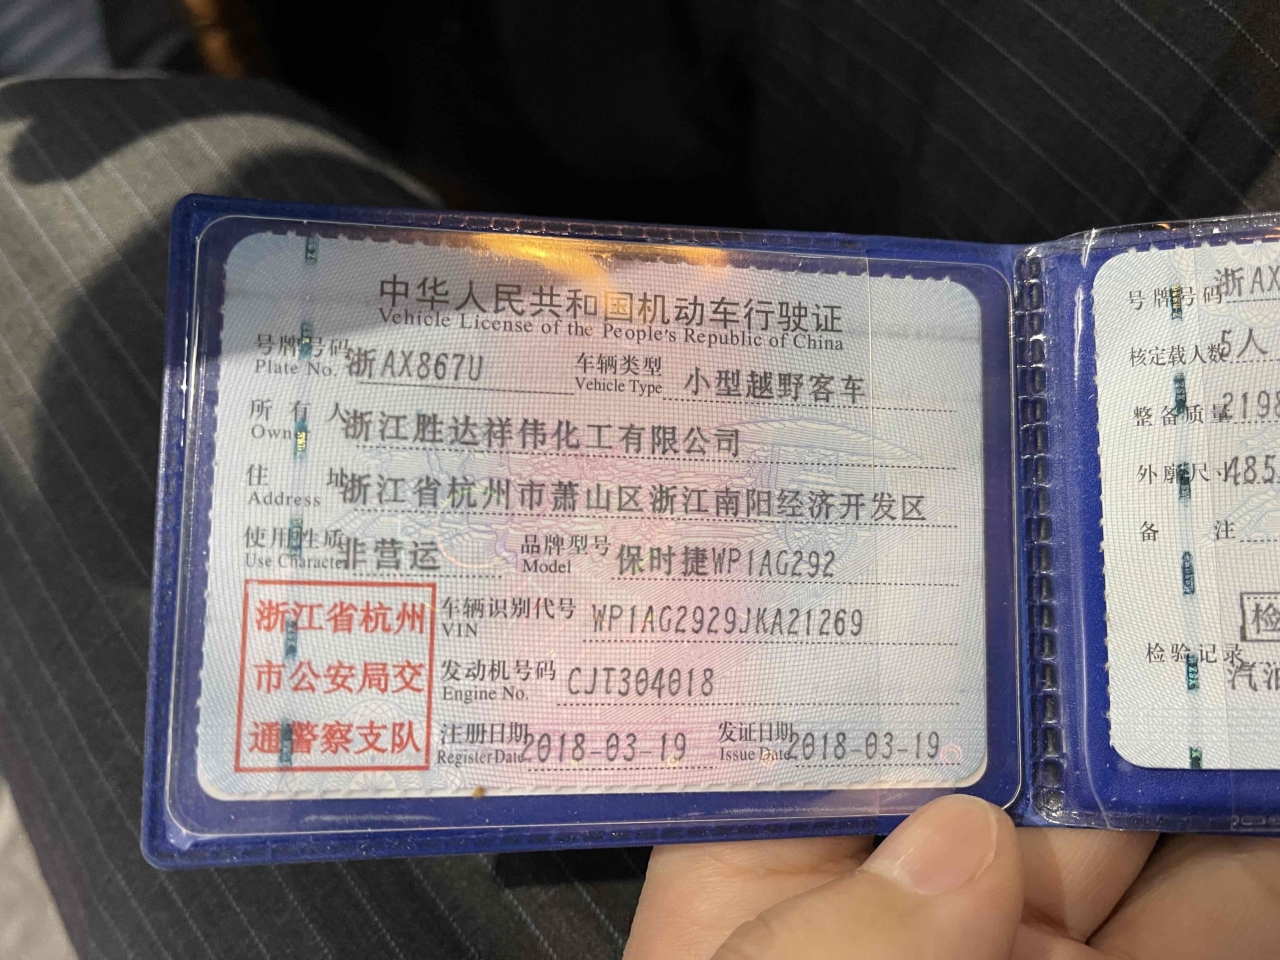 中华人民共和国机动车行驶证
Vehicle License of the People's Republic of China
号牌号码 浙AX867U 车辆类型 小型越野客车
Plate No. Vehicle Type
所有人 浙江胜达祥伟化工有限公司
Owner
住址 浙江省杭州市萧山区浙江南阳经济开发区
Address
使用性质 非营运 品牌型号 保时捷WP1AG292
Use Character Model
浙江省杭州
市公安局交
通警察支队
车辆识别代号 WP1AG2929JKA21269
VIN
发动机号码 CJT304018
Engine No.
注册日期 2018-03-19 发证日期 2018-03-19
Register Date Issue Date
号牌号码 浙AX
核定载人数 5人
整备质量 219
外廓尺寸 485
备注
检
检验记录
汽油